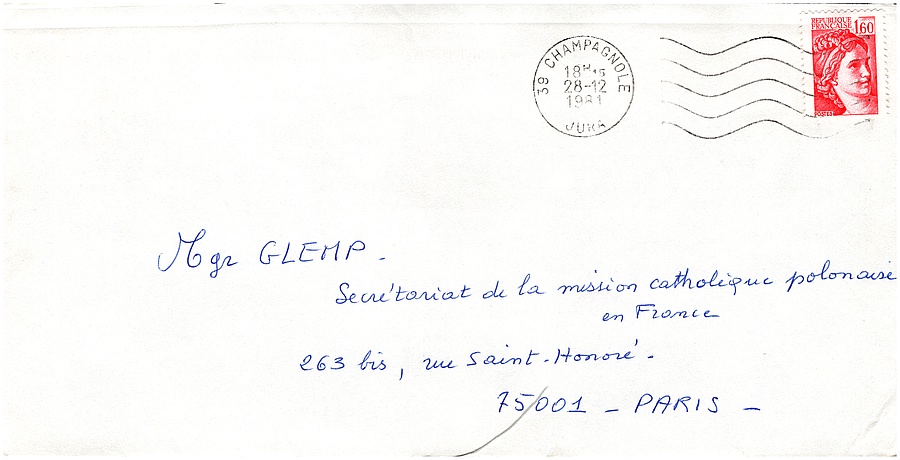 RÉPUBLIQUE
FRANÇAISE
1,60
POSTES
39 CHAMPAGNOLE
18H
28-12
1981
JURA
Mgr GLEMP -
Secrétariat de la mission catholique polonaise
en France
263 bis, rue Saint-Honoré -
75001 - PARIS -